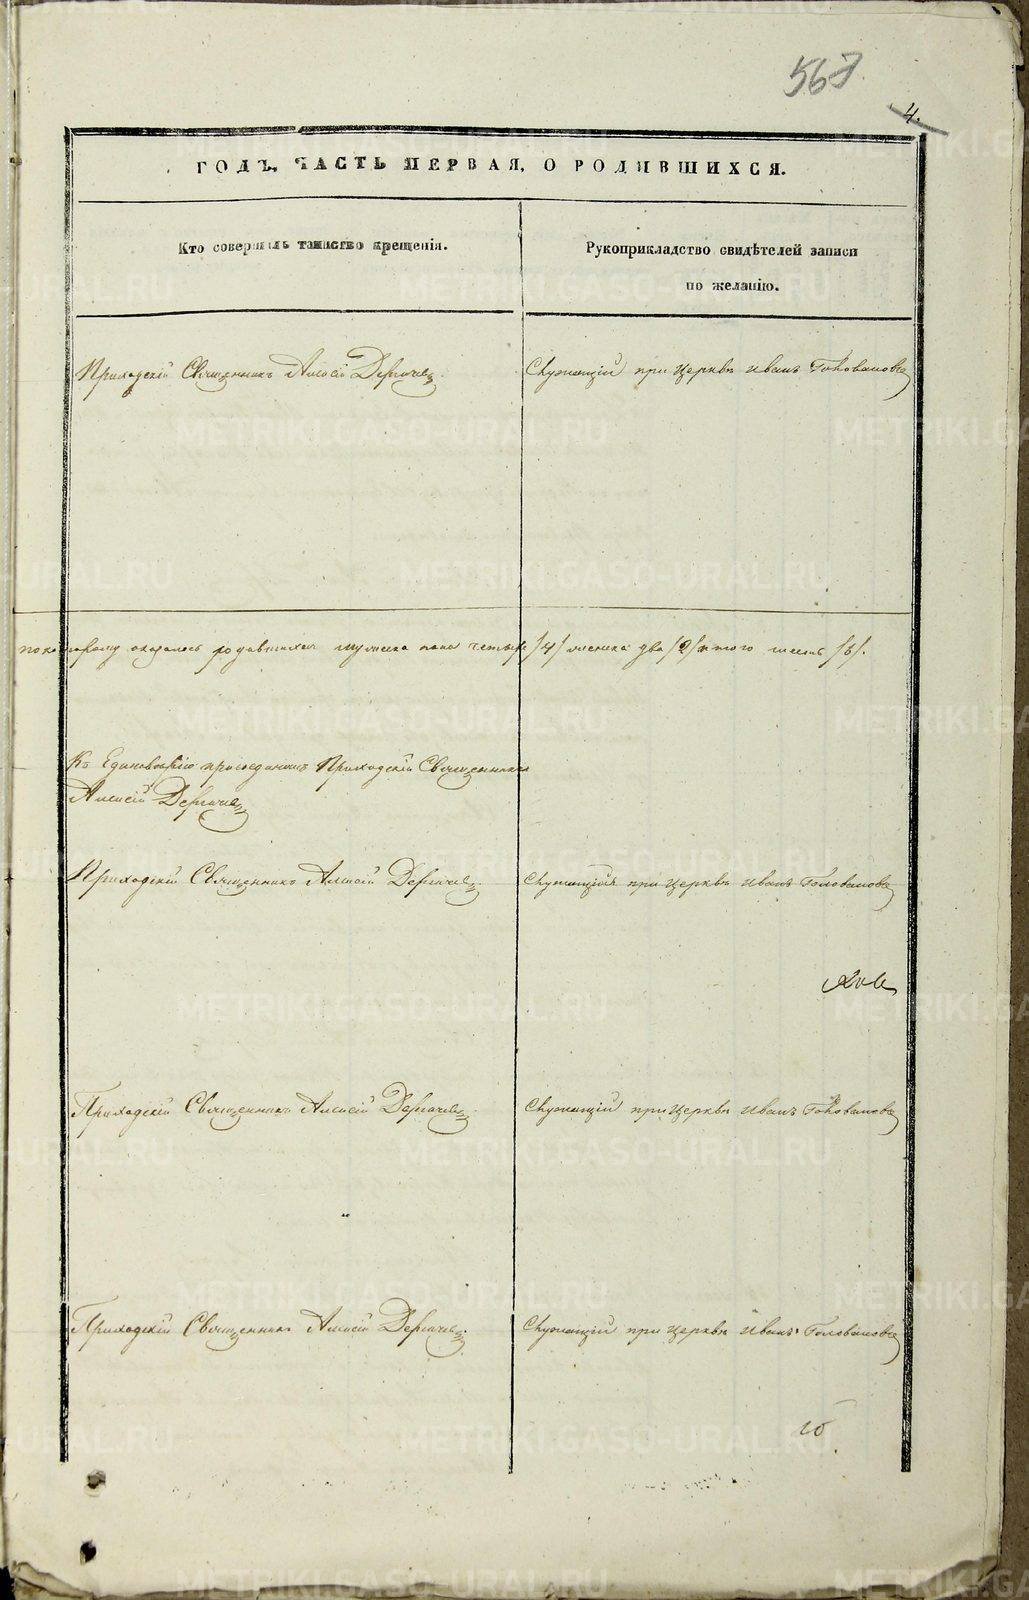 567
4.
ГОДЪ, ЧАСТЬ ПЕРВАЯ, О РОДИВШИХСЯ.
Кто совершилъ таинство крещенія.
Рукоприкладство свидѣтелей записи
по желанію.
Приходскій Священникъ Алексій Дергачевъ
Служащій при Церквѣ Иванъ Головановъ
по которому оказалось родившихся мужеска пола четыре /4/ женска два /2/ итого шесть /6/.
Къ Единовѣрію присоединилъ Приходскій Священникъ
Алексій Дергачевъ
Приходскій Священникъ Алексій Дергачевъ
Служащій при Церквѣ Иванъ Головановъ
Приходскій Священникъ Алексій Дергачевъ
Служащій при Церквѣ Иванъ Головановъ
Приходскій Священникъ Алексій Дергачевъ
Служащій при Церквѣ Иванъ Головановъ
METRIKI.GASO-URAL.RU